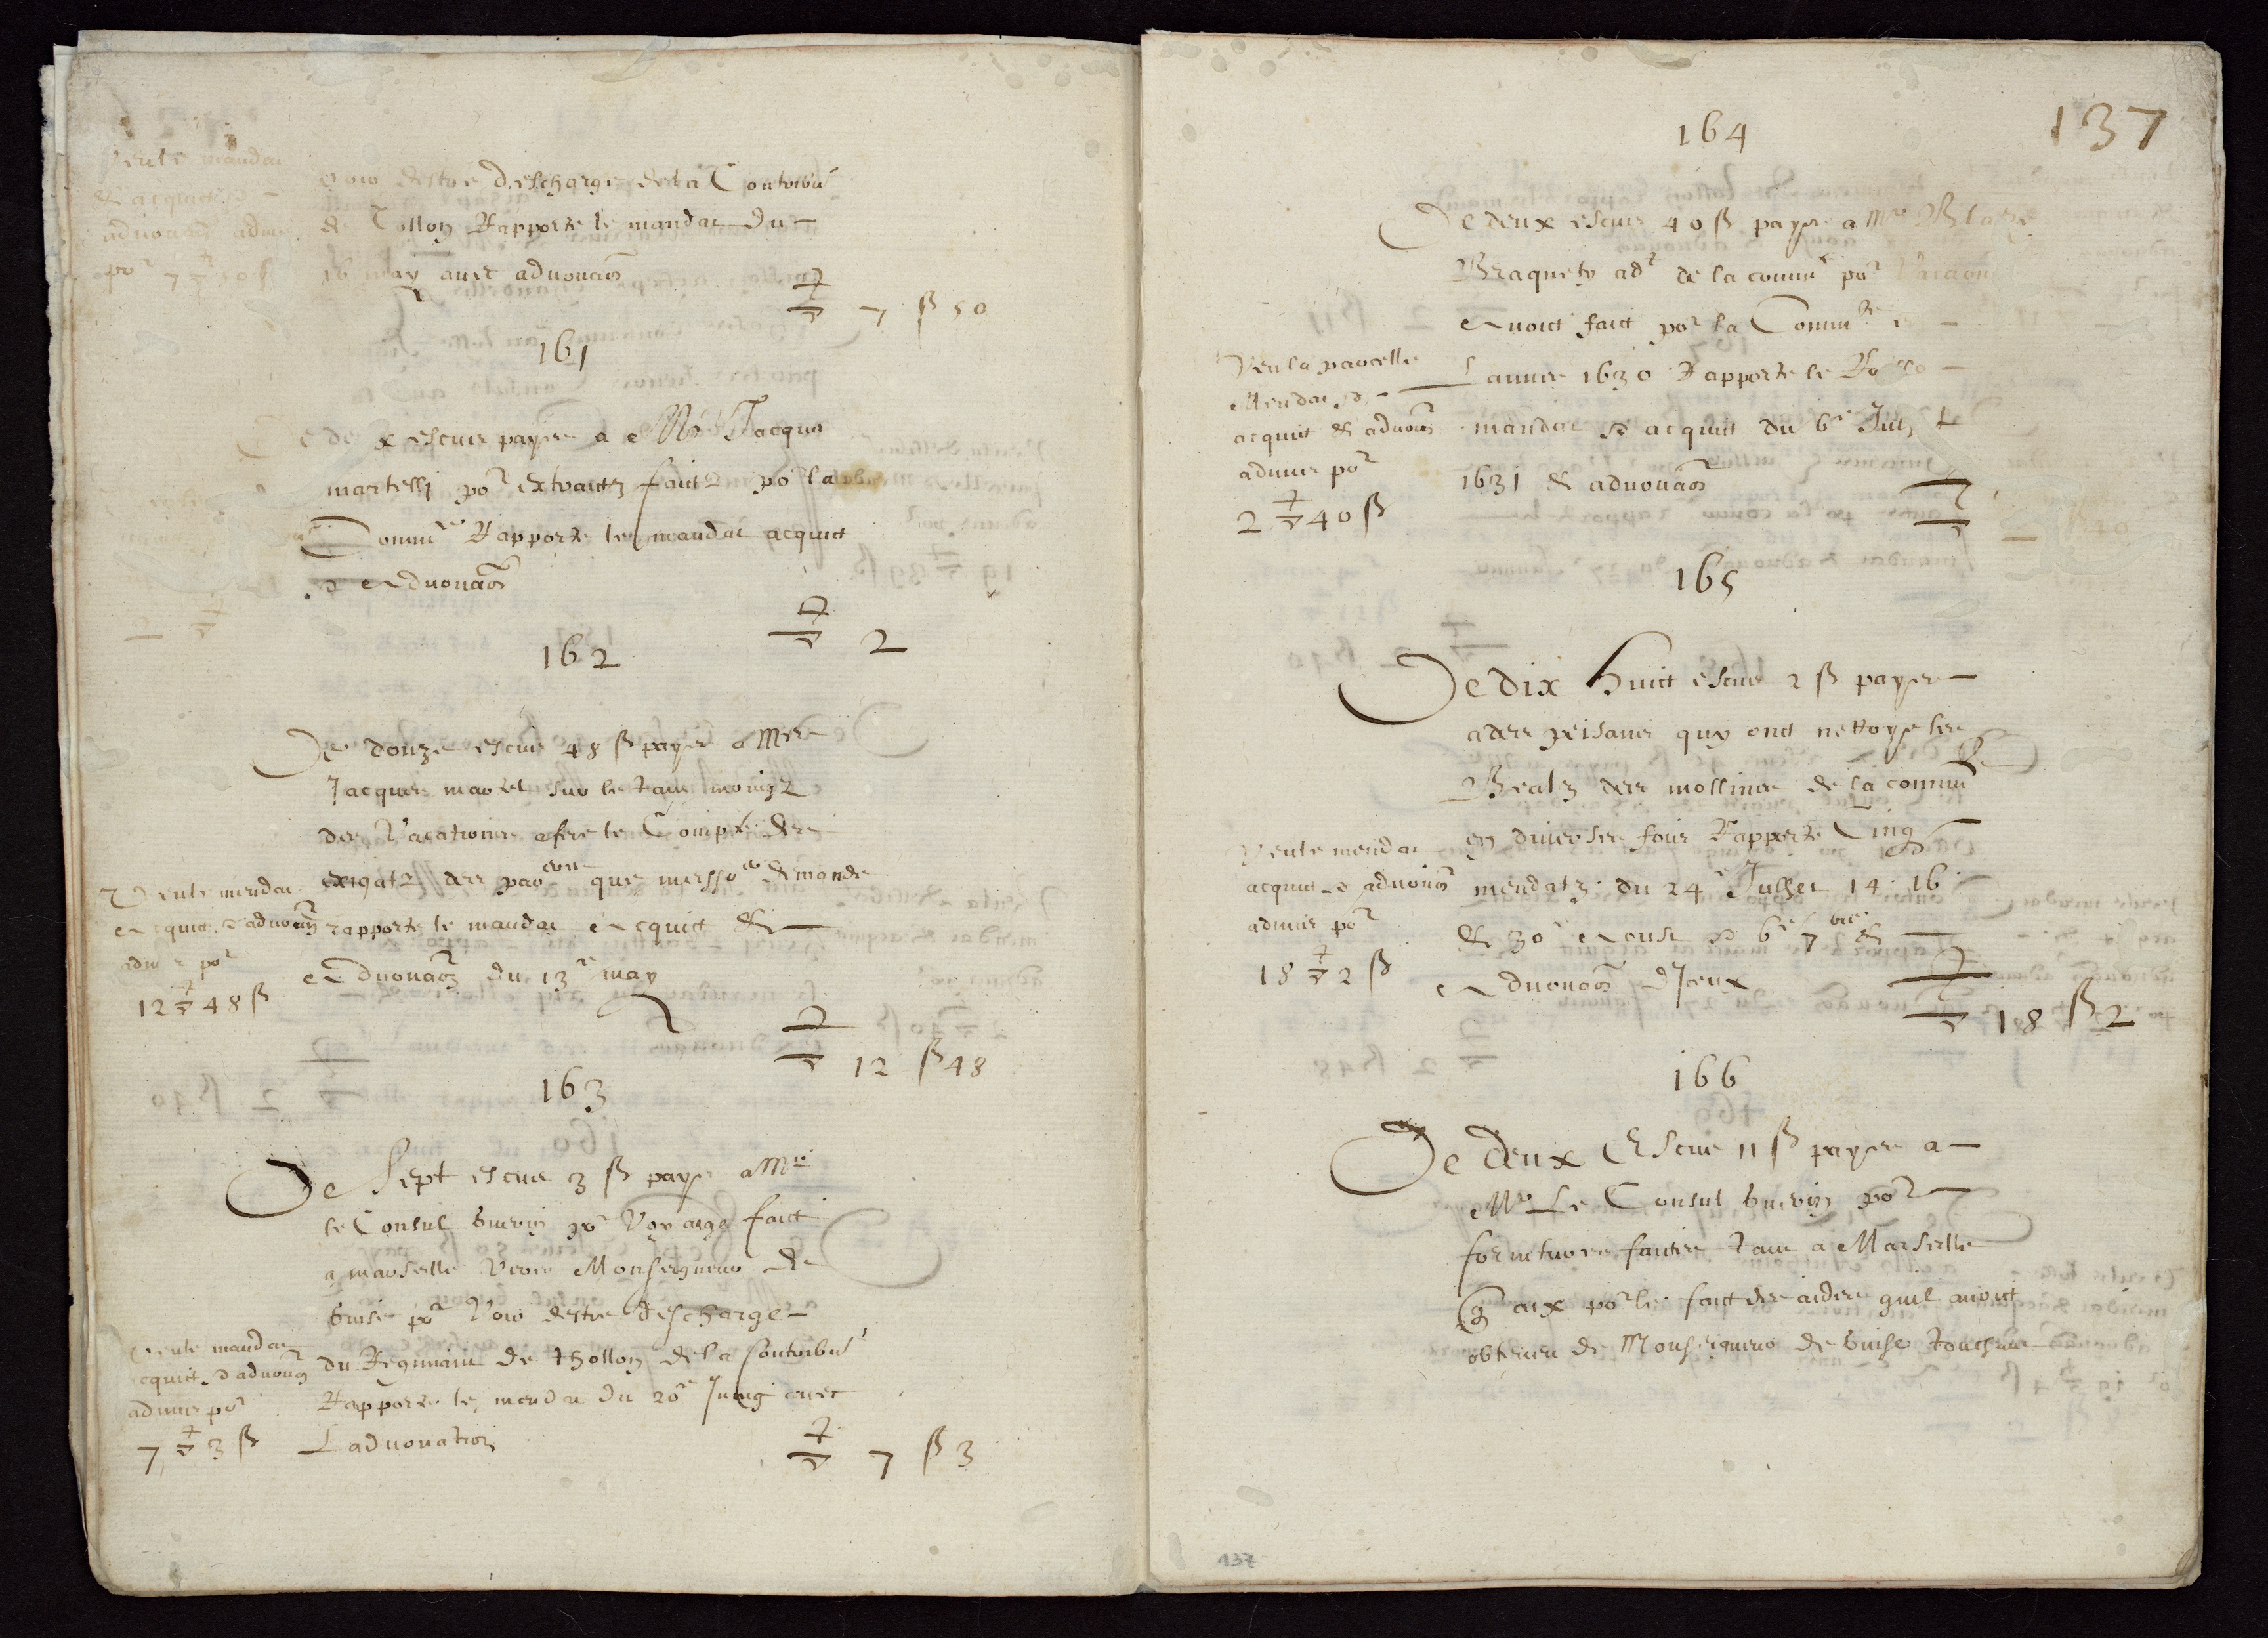 Veu le mandat
& acquict &
advouaõn admis
poʳ 7 ▽ 50 ß
pour destre descharge de la Contribuõn
de Tollon Rapporte le mandat du
16 may avec advouaõn
▽ 7 ß 50
161
De deux escus payes a Mʳᵉ Jacques
martelly poʳ extraictz faictz poʳ la
Commᵗᵉ Rapporte le mandat acquict
& Advouaõn
▽ 2
162
De douze escus 48 ß payes a Mᵉʳ
Jacques martel sur
des Vacations a fere le Compte des
exigatz des que demande
rapporte le mandat Acquict &
Advouaõn du 13ᵉ may
Veu le mandat
Acquict & advouaõn
admis poʳ
12 ▽ 48 ß
▽ 12 ß 48
163
De Sept escus 3 ß paye a Mʳᵉ
le Consul Guerin poʳ Voyaige faict
a marseille Vers Monseigneur de
Guise poʳ destre descharge
du Regiment de thollon de la contribuõn
Rapporte le mandat du 20ᵉ Juing avec
Ladvouation
Veu le mandat
acquict & advouaõn
admis poʳ
7 ▽ 3 ß
▽ 7 ß 3
137
164
De deux escus 40 ß payes a Mʳᵉ Blaze
Braquety adᵗ de la commᵉ poʳ
Avoict faict poʳ la Commᵗᵉ
Lannee 1630 Rapporte le Rolle
mandat & acquict du 6ᵉ Juin
1631 & advouaõn
Veu la parcelle
Mandat &
acquit & advouaõn
admis poʳ
2 ▽ 40 ß
▽ 2 ß 40
165
De dix huict escus 2 ß payes
a des peisans quy ont nettoye les
Bealz des mollins de la commᵗᵉ
en diverses fois Rapporte Cinq
mendatz du 24ᵉ Julhet 14 16
& 30ᵉ Aoust & 6ᵉ 7ᵇʳᵉ &
Advouaõn dIceux
Veu le mendat
acquict & advouaõn
admis poʳ
18 ▽ 2 ß
▽ 18 ß 2
166
De deux Escus 11 ß payes a
Mʳᵉ Le Consul Guerin poʳ
fornitures faictes tant a Marseille
qa aix poʳ le faict des aides quil avoict
obtenu de Monseigneur de Guise touchant
137